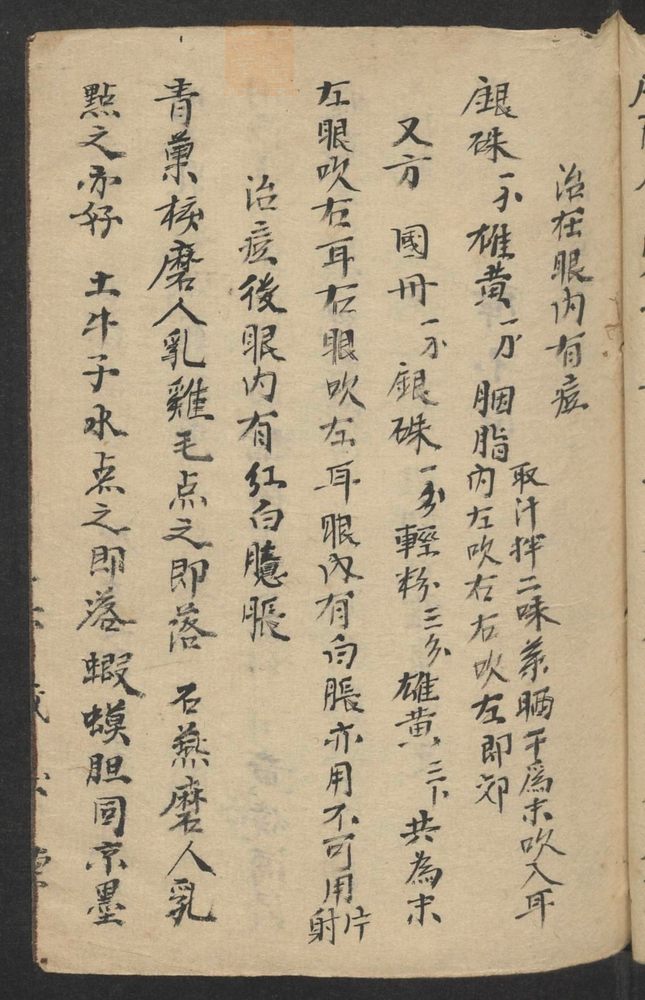 治在眼内有痘
銀硃一分雄黄一分胭脂取汁拌二味藥晒干爲末吹入耳
内左吹右右吹左即卸
又方 國丹一分銀硃一分輕粉三分雄黄三卜共為末
左眼吹右耳右眼吹左耳眼内有白脹亦用不可用片射
治痘後眼内有紅白臆脹
青菓核磨人乳雞毛点之即落 石燕磨人乳
點之亦好 土牛子水点之即落蝦蟆胆同京墨